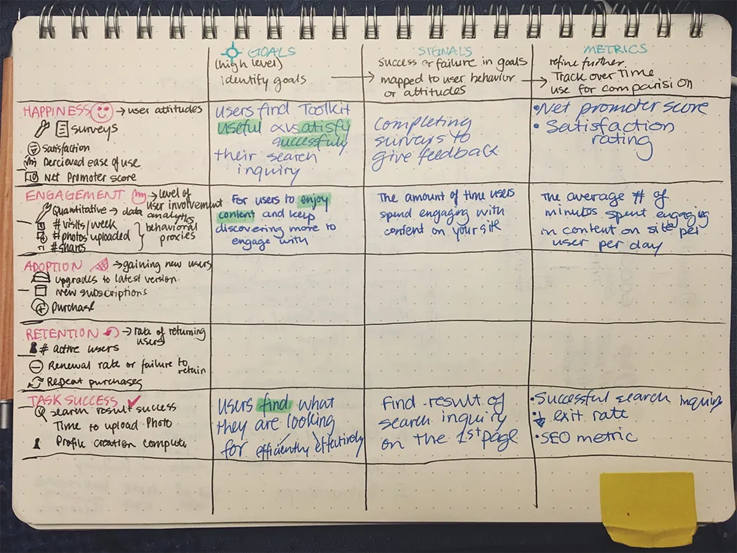 GOALS
(high level)
identify goals
SIGNALS
success or failure in goals
mapped to user behavior
or attitudes
METRICS
refine further.
Track over Time
use for comparision
HAPPINESS → user attitudes
surveys
satisfaction
Percieved ease of use
Net Promoter score
users find Toolkit
useful satisfy
successfully
their search
inquiry
completing
surveys to
give feedback
• Net promoter score
• Satisfaction
rating
ENGAGEMENT → level of
user involvement
Quantitative → data analytics
# visits/week
# photos uploaded
# shares
behavioral
proxies
For users to enjoy
content and keep
discovering more to
engage with
The amount of time users
spend engaging with
content on your site
The average # of
minutes spent engaging
in content on site per
user per day
ADOPTION → gaining new users
upgrades to latest version
new subscriptions
Purchase
RETENTION → rate of returning
users
# active users
Renewal rate or failure to
retain
Repeat purchases
TASK SUCCESS
search result success
Time to upload Photo
Profile creation
Users find what
they are looking
for efficiently effectively
Find result of
search inquiry
on the 1st page
• Successful search inquiry
• ↓ exit rate
• SEO metric